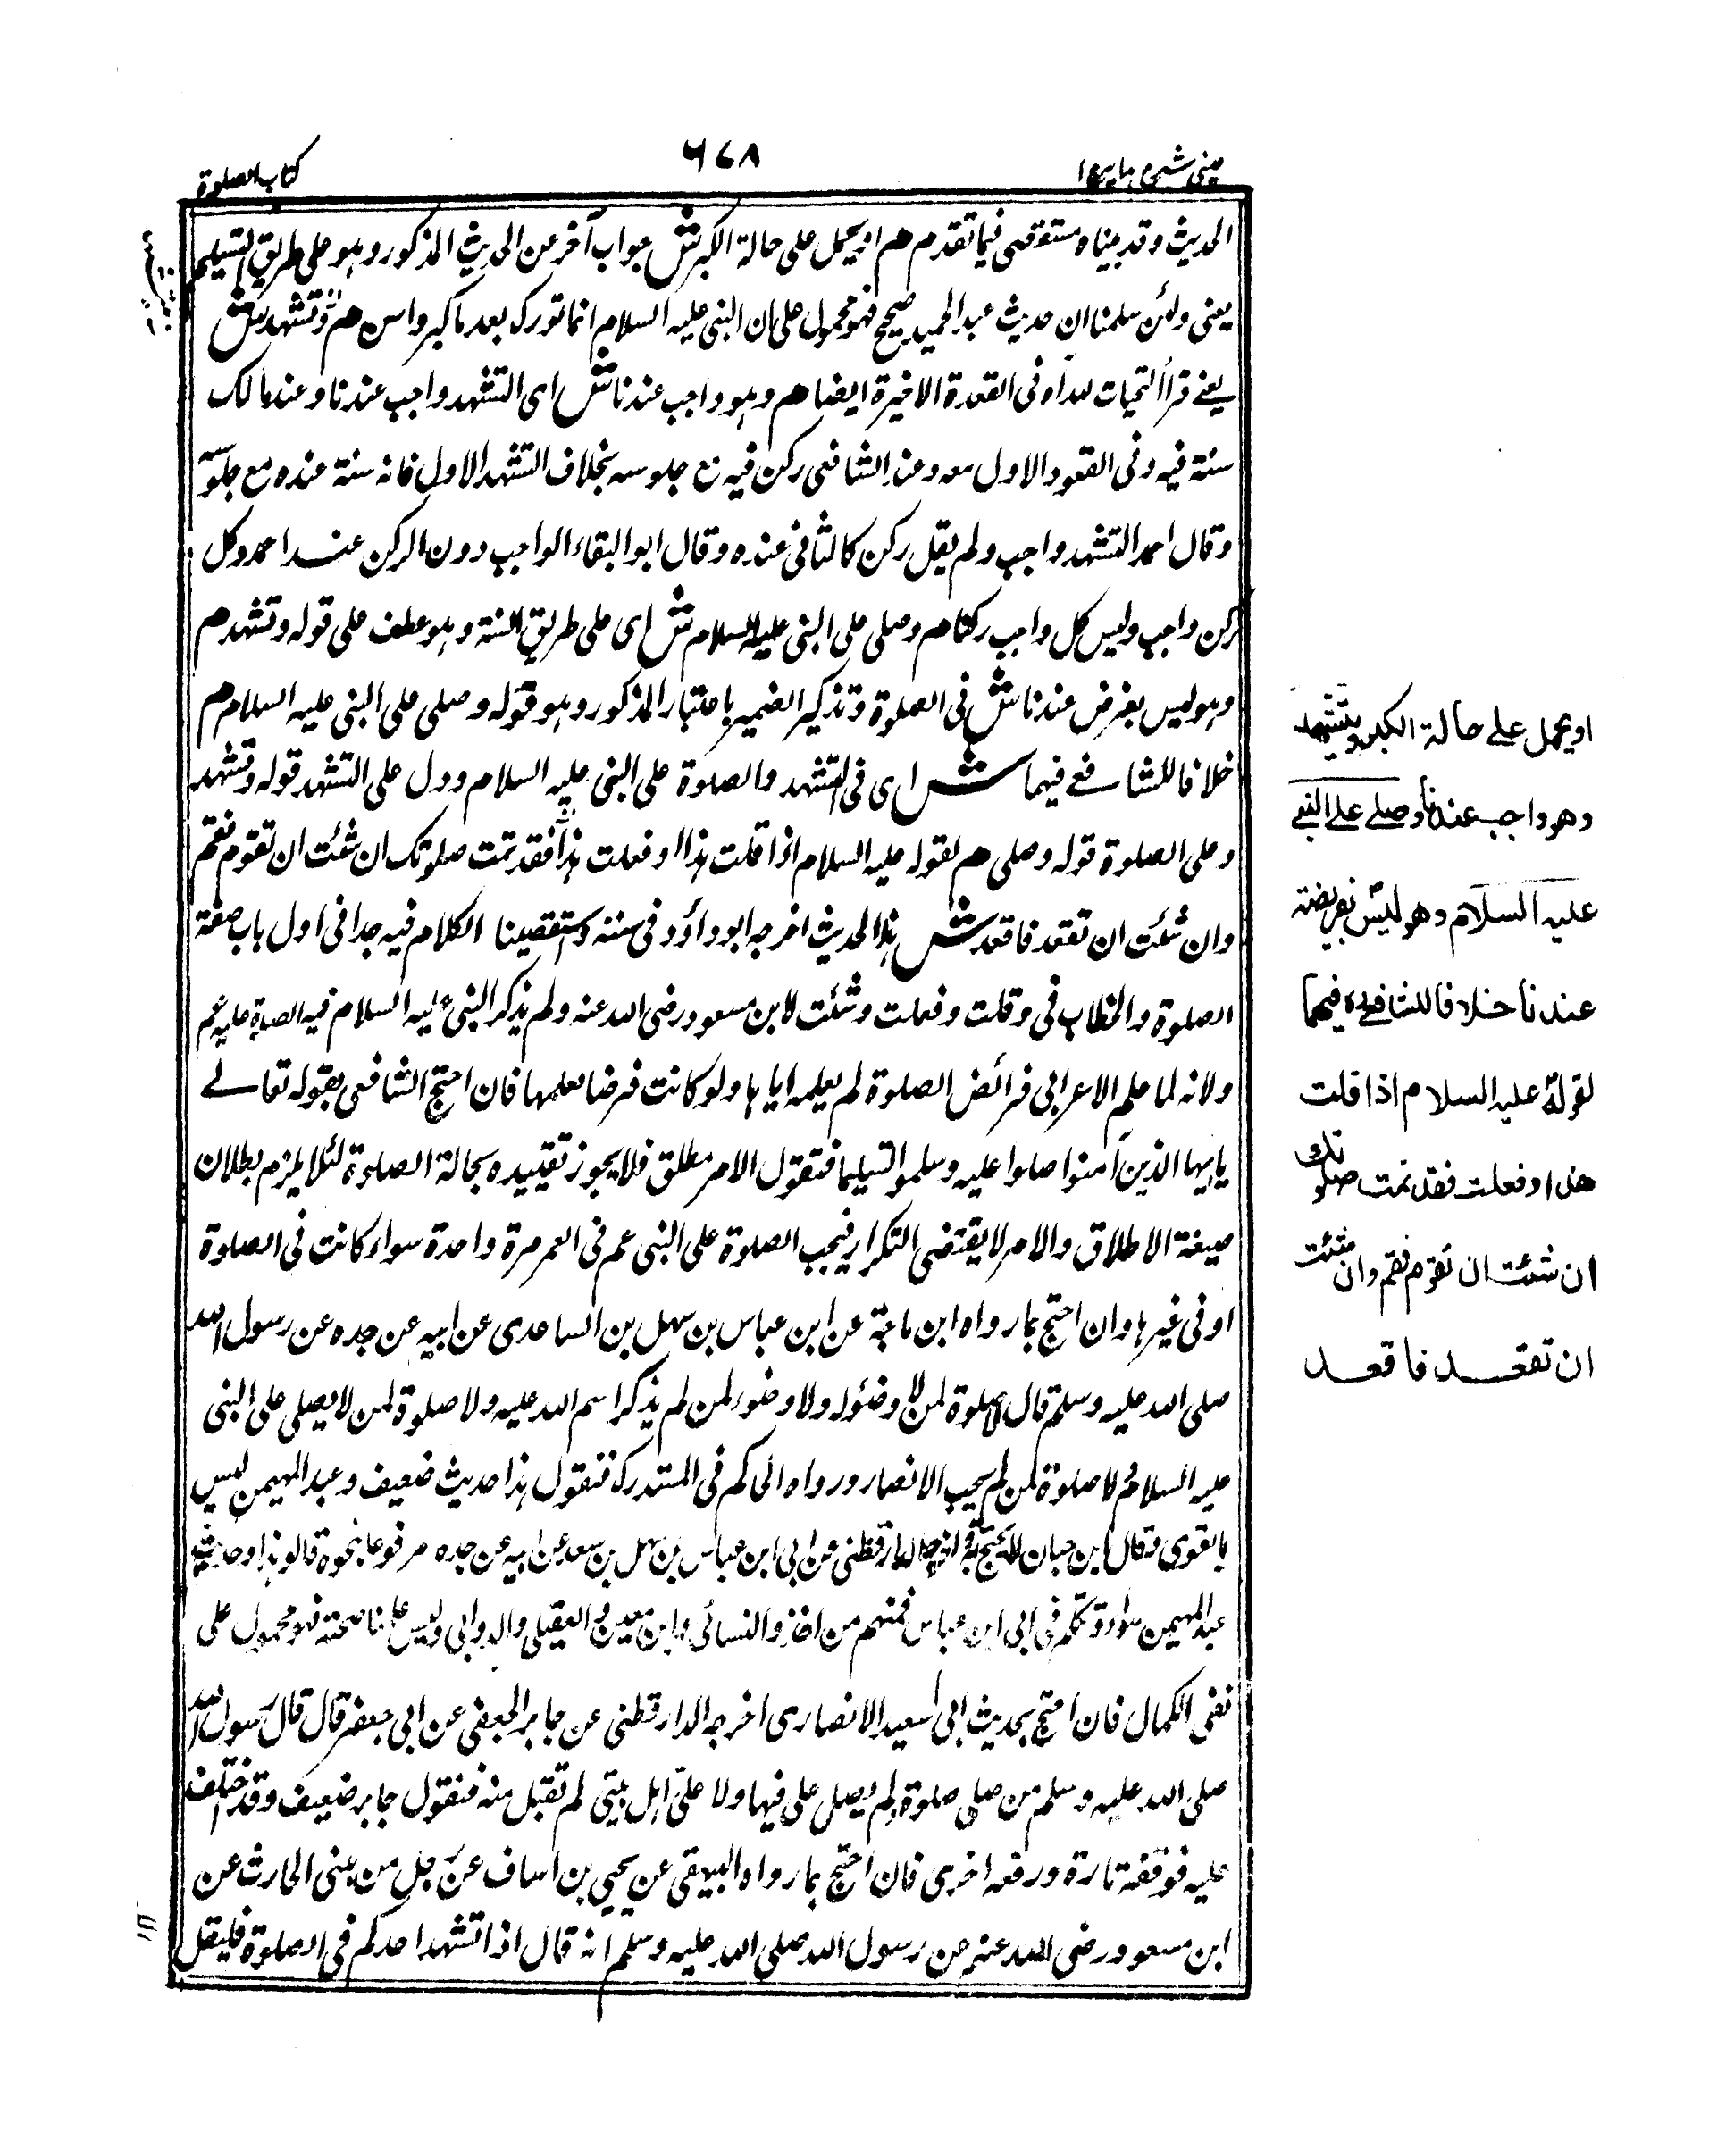 عینی شرح ہدایہ ج ۱
۶۷۸
کتاب الصلوة
الحدیث وقد بیناہ مستقصی فیما تقدم ھم او یحمل علی حالة الکبر ش جواب آخر عن الحدیث المذکور وہو علی طریق التسلیم
یعنی ولئن سلمنا ان حدیث عبدالحمید صحیح فہو محمول علی ان النبی علیہ السلام انما تورک بعد ما کبر واسن ھم وتشہد ش
یعنے قرأ التحیات للہ اہ فی القعدة الاخیرة ایضا ھم وہو واجب عندنا ش ای التشہد واجب عندنا وعند مالک
سنة فیہ وفی القعود الاول معہ وعند الشافعی رکن فیہ مع جلوسہ بخلاف التشہد الاول فانہ سنة عندہ مع جلوسہ
وقال احمد التشہد واجب ولم یقل رکن کالثانی عندہ وقال ابو البقاء الواجب دون الرکن عند احمد وکل
رکن واجب ولیس کل واجب رکنا ھم وصلی علی النبی علیہ السلام ش ای علی طریق السنة وہو عطف علی قولہ وتشہد ھم
وہو لیس بفرض عندنا ش فی الصلوة وتذکیر الضمیر باعتبار المذکور وہو قولہ وصلی علی النبی علیہ السلام ھم
خلافا للشافعے فیہما ش ای فی التشہد والصلوة علی النبی علیہ السلام ودل علی التشہد قولہ وتشہد
وعلی الصلوة قولہ وصلی ھم لقولہ علیہ السلام اذا قلت ہذا او فعلت ہذا فقد تمت صلوتک ان شئت ان تقوم فقم
وان شئت ان تقعد فاقعد ش ہذا الحدیث اخرجہ ابو داؤد فی سننہ واستقصینا الکلام فیہ جدا فی اول باب صفة
الصلوة والخطاب فی وقلت وفعلت وشئت لابن مسعود رضی اللہ عنہ ولم یذکر النبی علیہ السلام فیہ الصلوة علیہ عم
ولانہ لما علم الاعرابی فرائض الصلوة لم یعلمہ ایاہا ولو کانت فرضا لعلمہا فان احتج الشافعی بقولہ تعالے
یایہا الذین آمنوا صلوا علیہ وسلموا تسلیما فنقول الامر مطلق فلا یجوز تقییدہ بحالة الصلوة لئلا یلزم بطلان
صیغة الاطلاق والامر لا یقتضی التکرار فیجب الصلوة علی النبی عم فی العمر مرة واحدة سواء کانت فی الصلوة
او فی غیرہا وان احتج بما رواہ ابن ماجة عن ابن عباس بن سہل بن الساعدی عن ابیہ عن جدہ عن رسول اللہ
صلی اللہ علیہ وسلم قال لا صلوة لمن لا وضوء لہ ولا وضوء لمن لم یذکر اسم اللہ علیہ ولا صلوة لمن لا یصلی علی النبی
علیہ السلام ولا صلوة لمن لم یحب الانصار ورواہ الحاکم فی المستدرک فنقول ہذا حدیث ضعیف وعبد المہیمن لیس
بالقوی وقال ابن حبان لا یحتج بہ واخرجہ الدارقطنی عن ابی ابن عباس بن سہل بن سعد عن ابیہ عن جدہ مرفوعا بنحوہ قالوا ہذا وحدیث
عبد المہیمن سواء وتکلم فی ابی ابن عباس فمنہم من احمد والنسائی وابن معین والعقیلی والدولابی ولئن سلمنا صحتہ فہو محمول علی
نفی الکمال فان احتج بحدیث ابی سعید الانصاری اخرجہ الدارقطنی عن جابر الجعفی عن ابی جعفر قال قال رسول اللہ
صلی اللہ علیہ وسلم من صلی صلوة لم یصل علی فیہا ولا علی اہل بیتی لم تقبل منہ فنقول جابر ضعیف وقد اختلف
علیہ فوقفہ تارة ورفعہ اخری فان احتج بما رواہ البیہقی عن یحیی بن اساف عن رجل من بنی الحارث عن
ابن مسعود رضی اللہ عنہ عن رسول اللہ صلی اللہ علیہ وسلم انہ قال اذا تشہد احدکم فی الصلوة فلیقل
او یحمل علے حالة الکبر ویتشہد
وھو واجب عندنا وصلے علے النبے
علیہ السلام وھو لیس بفریضة
عندنا خلافا للشافعے فیھما
لقولہ علیہ السلام اذا قلت
ھذا او فعلت فقد تمت صلوتک
ان شئت ان تقوم فقم وان شئت
ان تقعد فاقعد